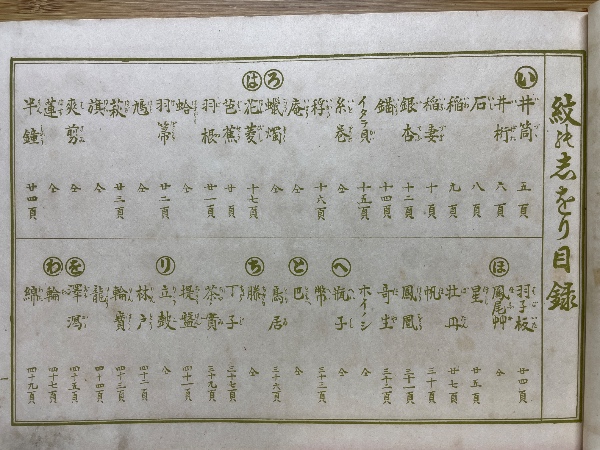 紋の志をり目録
い 井筒 五頁
井桁 六頁
石 八頁
稲 九頁
稲妻 十頁
銀杏 十二頁
錨 十四頁
イタラ貝 十五頁
糸巻 仝
ろ 庵 仝
蠟燭 仝
は 花菱 十七頁
芭蕉 廿頁
羽根 廿一頁
蛤 仝
羽箒 廿二頁
鳩 仝
萩 廿三頁
旗 仝
蓮 仝
半鐘 廿四頁
羽子板 廿四頁
ほ 鳳尾艸 仝
星 廿五頁
牡丹 廿七頁
帆 三十頁
鳳凰 三十一頁
ホイノシ 仝
へ 瓶子 仝
幣 三十三頁
と 巴 仝
鳥居 三十六頁
ち 仝
丁子 三十七頁
茶實 三十九頁
提盤 四十一頁
り 立鼓 仝
林戸 四十二頁
輪寶 四十三頁
龍 四十四頁
を 澤瀉 四十五頁
わ 輪 四十七頁
綿 四十九頁